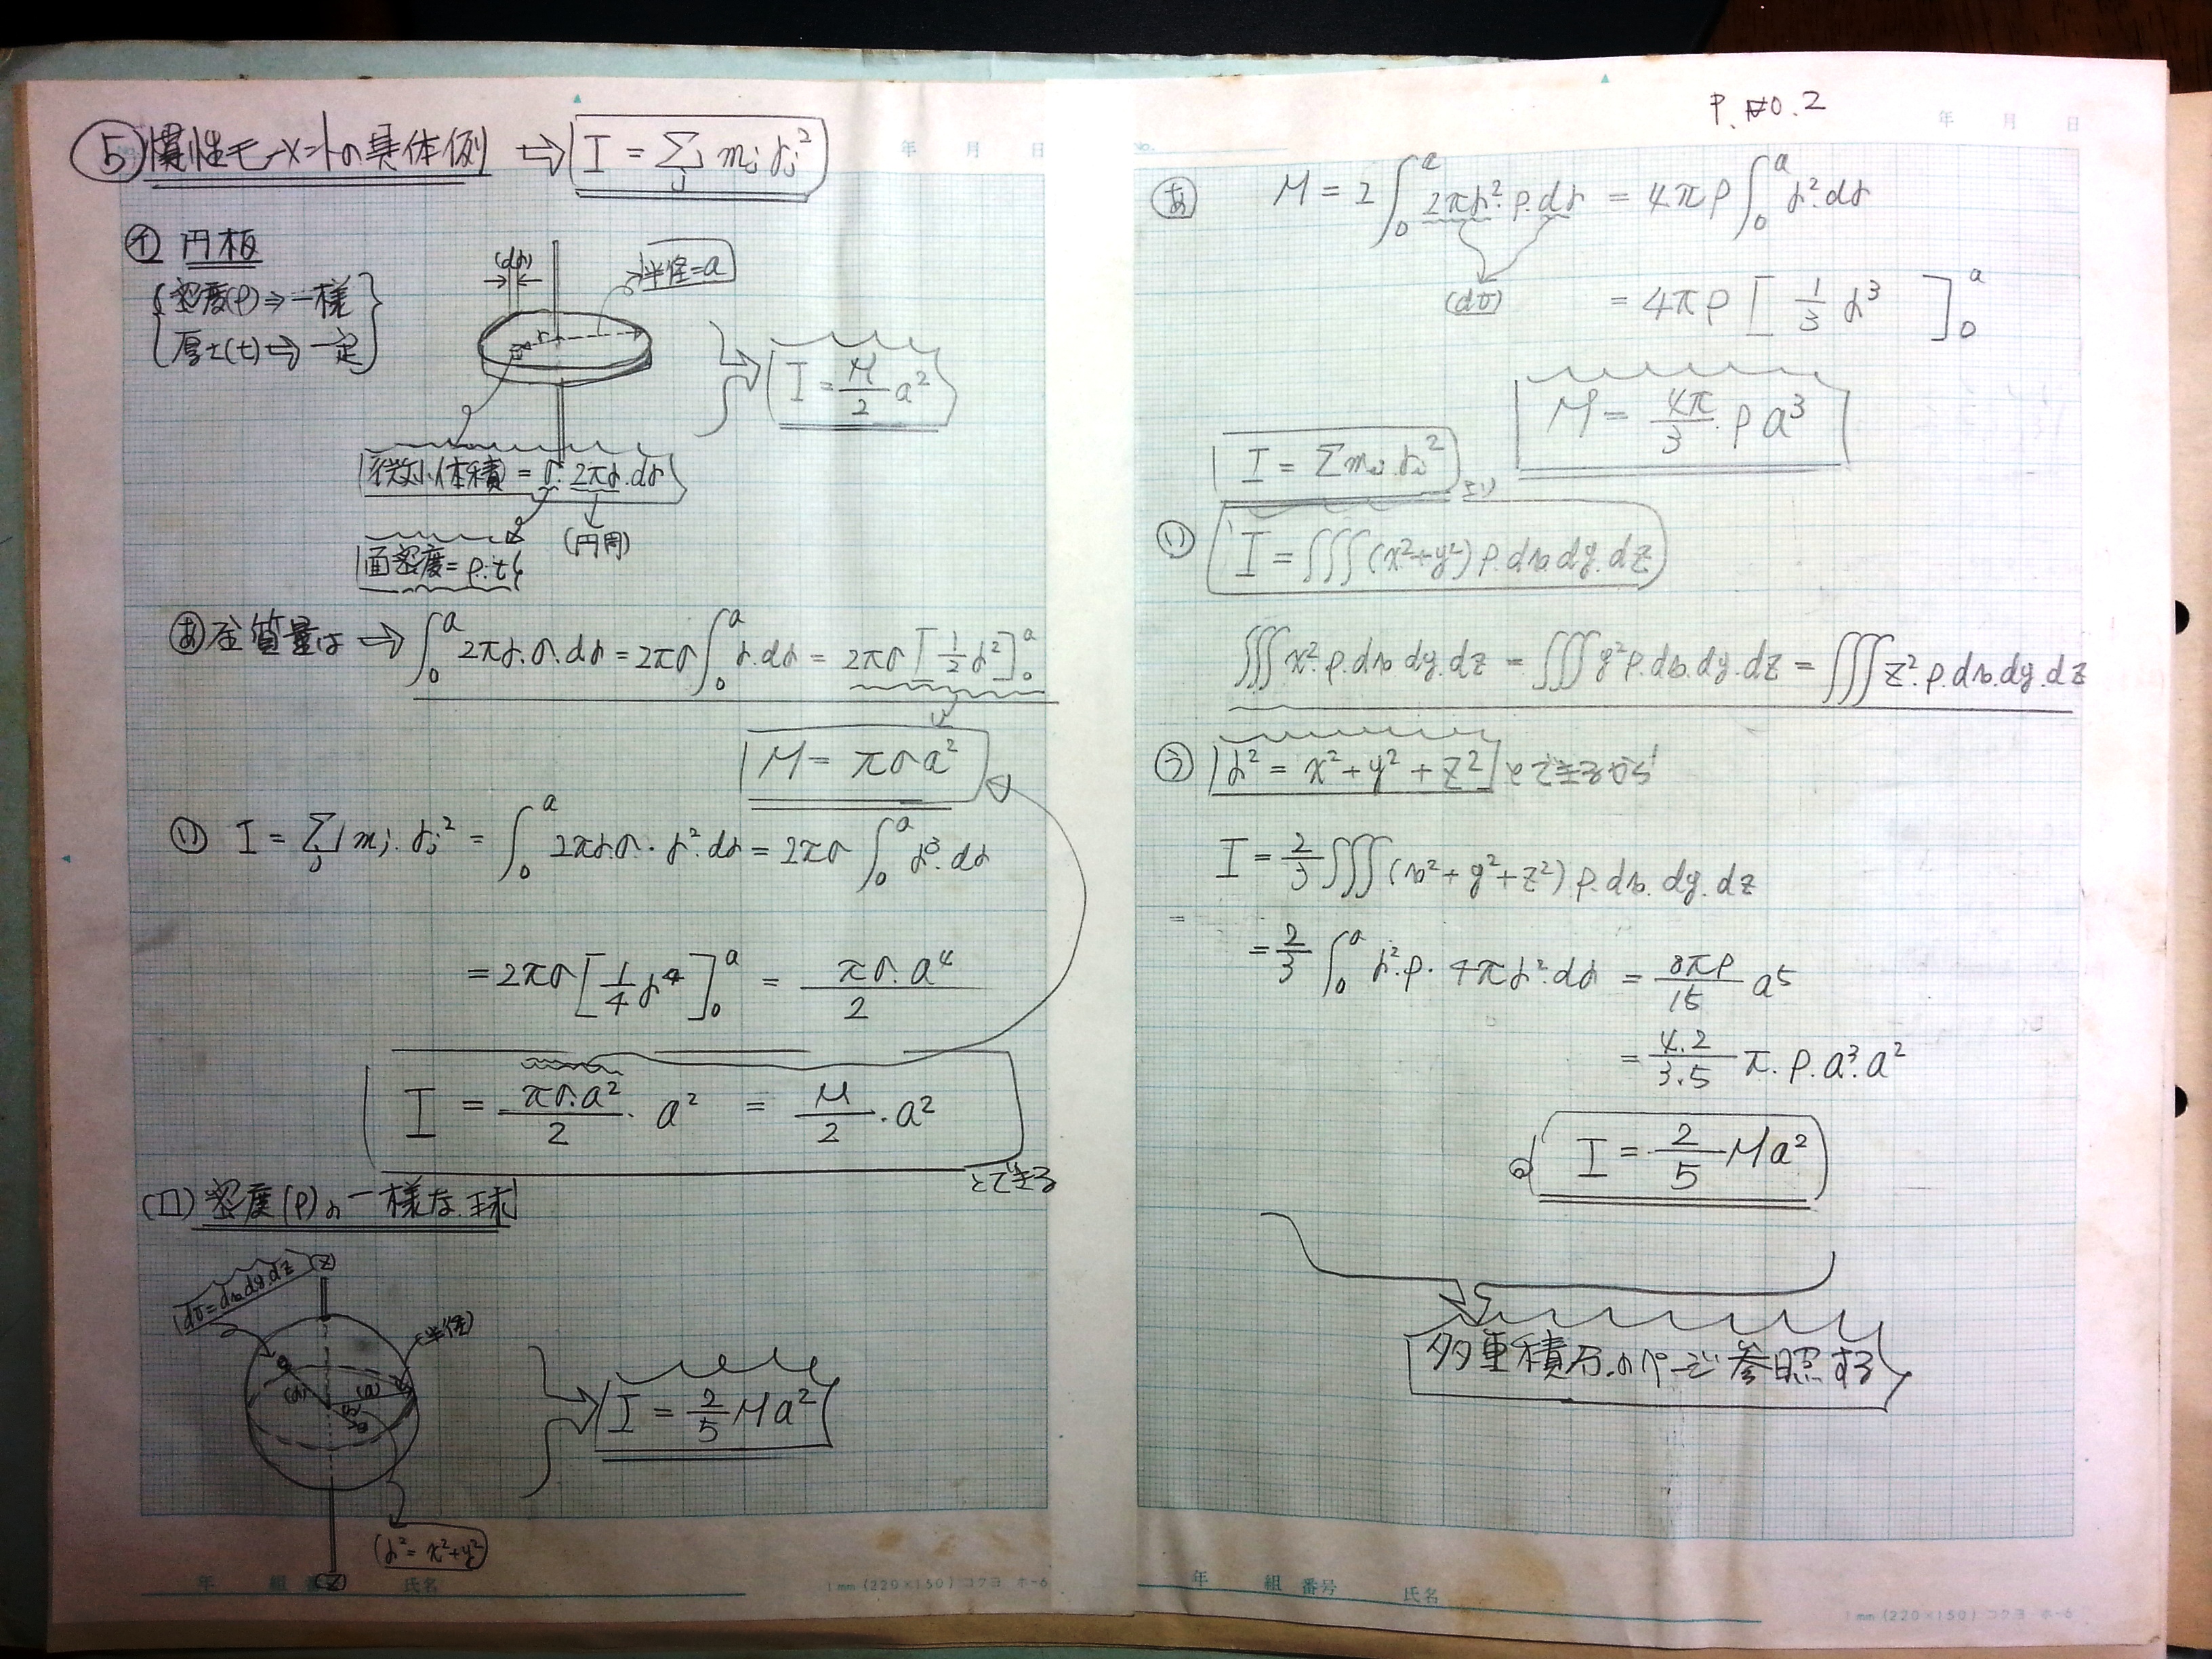 ⑤ 慣性モーメントの具体例 ⇨ I = Σj mj rj²
年 月 日
㋑ 円板
密度(ρ)⇒一様
厚さ(t)⇨一定
(dr)
半径=a
r
I = M/2 a²
微小体積 = σ・2πr・dr
(円周)
面密度=ρ・t
㋐ 全質量は ⇨ ∫₀ᵃ 2πr・σ・dr = 2πσ∫₀ᵃ r・dr = 2πσ[1/2 r²]₀ᵃ
M = πσa²
(い) I = Σj mj・rj² = ∫₀ᵃ 2πr・σ・r²・dr = 2πσ ∫₀ᵃ r³・dr
= 2πσ[1/4 r⁴]₀ᵃ = πσ・a⁴/2
I = πσ・a²/2・a² = M/2・a²
とできる
(ロ) 密度(ρ)の一様な球
dv=dx.dy.dz
(z)
(半径)
(a)
I = 2/5 Ma²
(r² = x²+y²)
(z)
年 組 番号 氏名
1mm (220×150) コクヨ ホ-6
P. No.2
年 月 日
No.
(あ) M = 2∫₀ᵃ 2πr²・ρ・dr = 4πρ∫₀ᵃ r²・dr
(dv)
= 4πρ[1/3 r³]₀ᵃ
M = 4π/3・ρa³
I = Σmj・rj² より
(い) I = ∭(x²+y²)ρ.dx.dy.dz
∭x².ρ.dx.dy.dz = ∭y²ρ.dx.dy.dz = ∭z².ρ.dx.dy.dz
(う) r² = x²+y²+z² とできるから
I = 2/3∭(x²+y²+z²)ρ.dx.dy.dz
= 2/3 ∫₀ᵃ r².ρ・4πr².dr = 8πρ/15 a⁵
= 4.2/3.5 π.ρ.a³.a²
I = 2/5 Ma²
多重積分のページ参照する
年 組 番号 氏名
1mm (220×150) コクヨ ホ-6